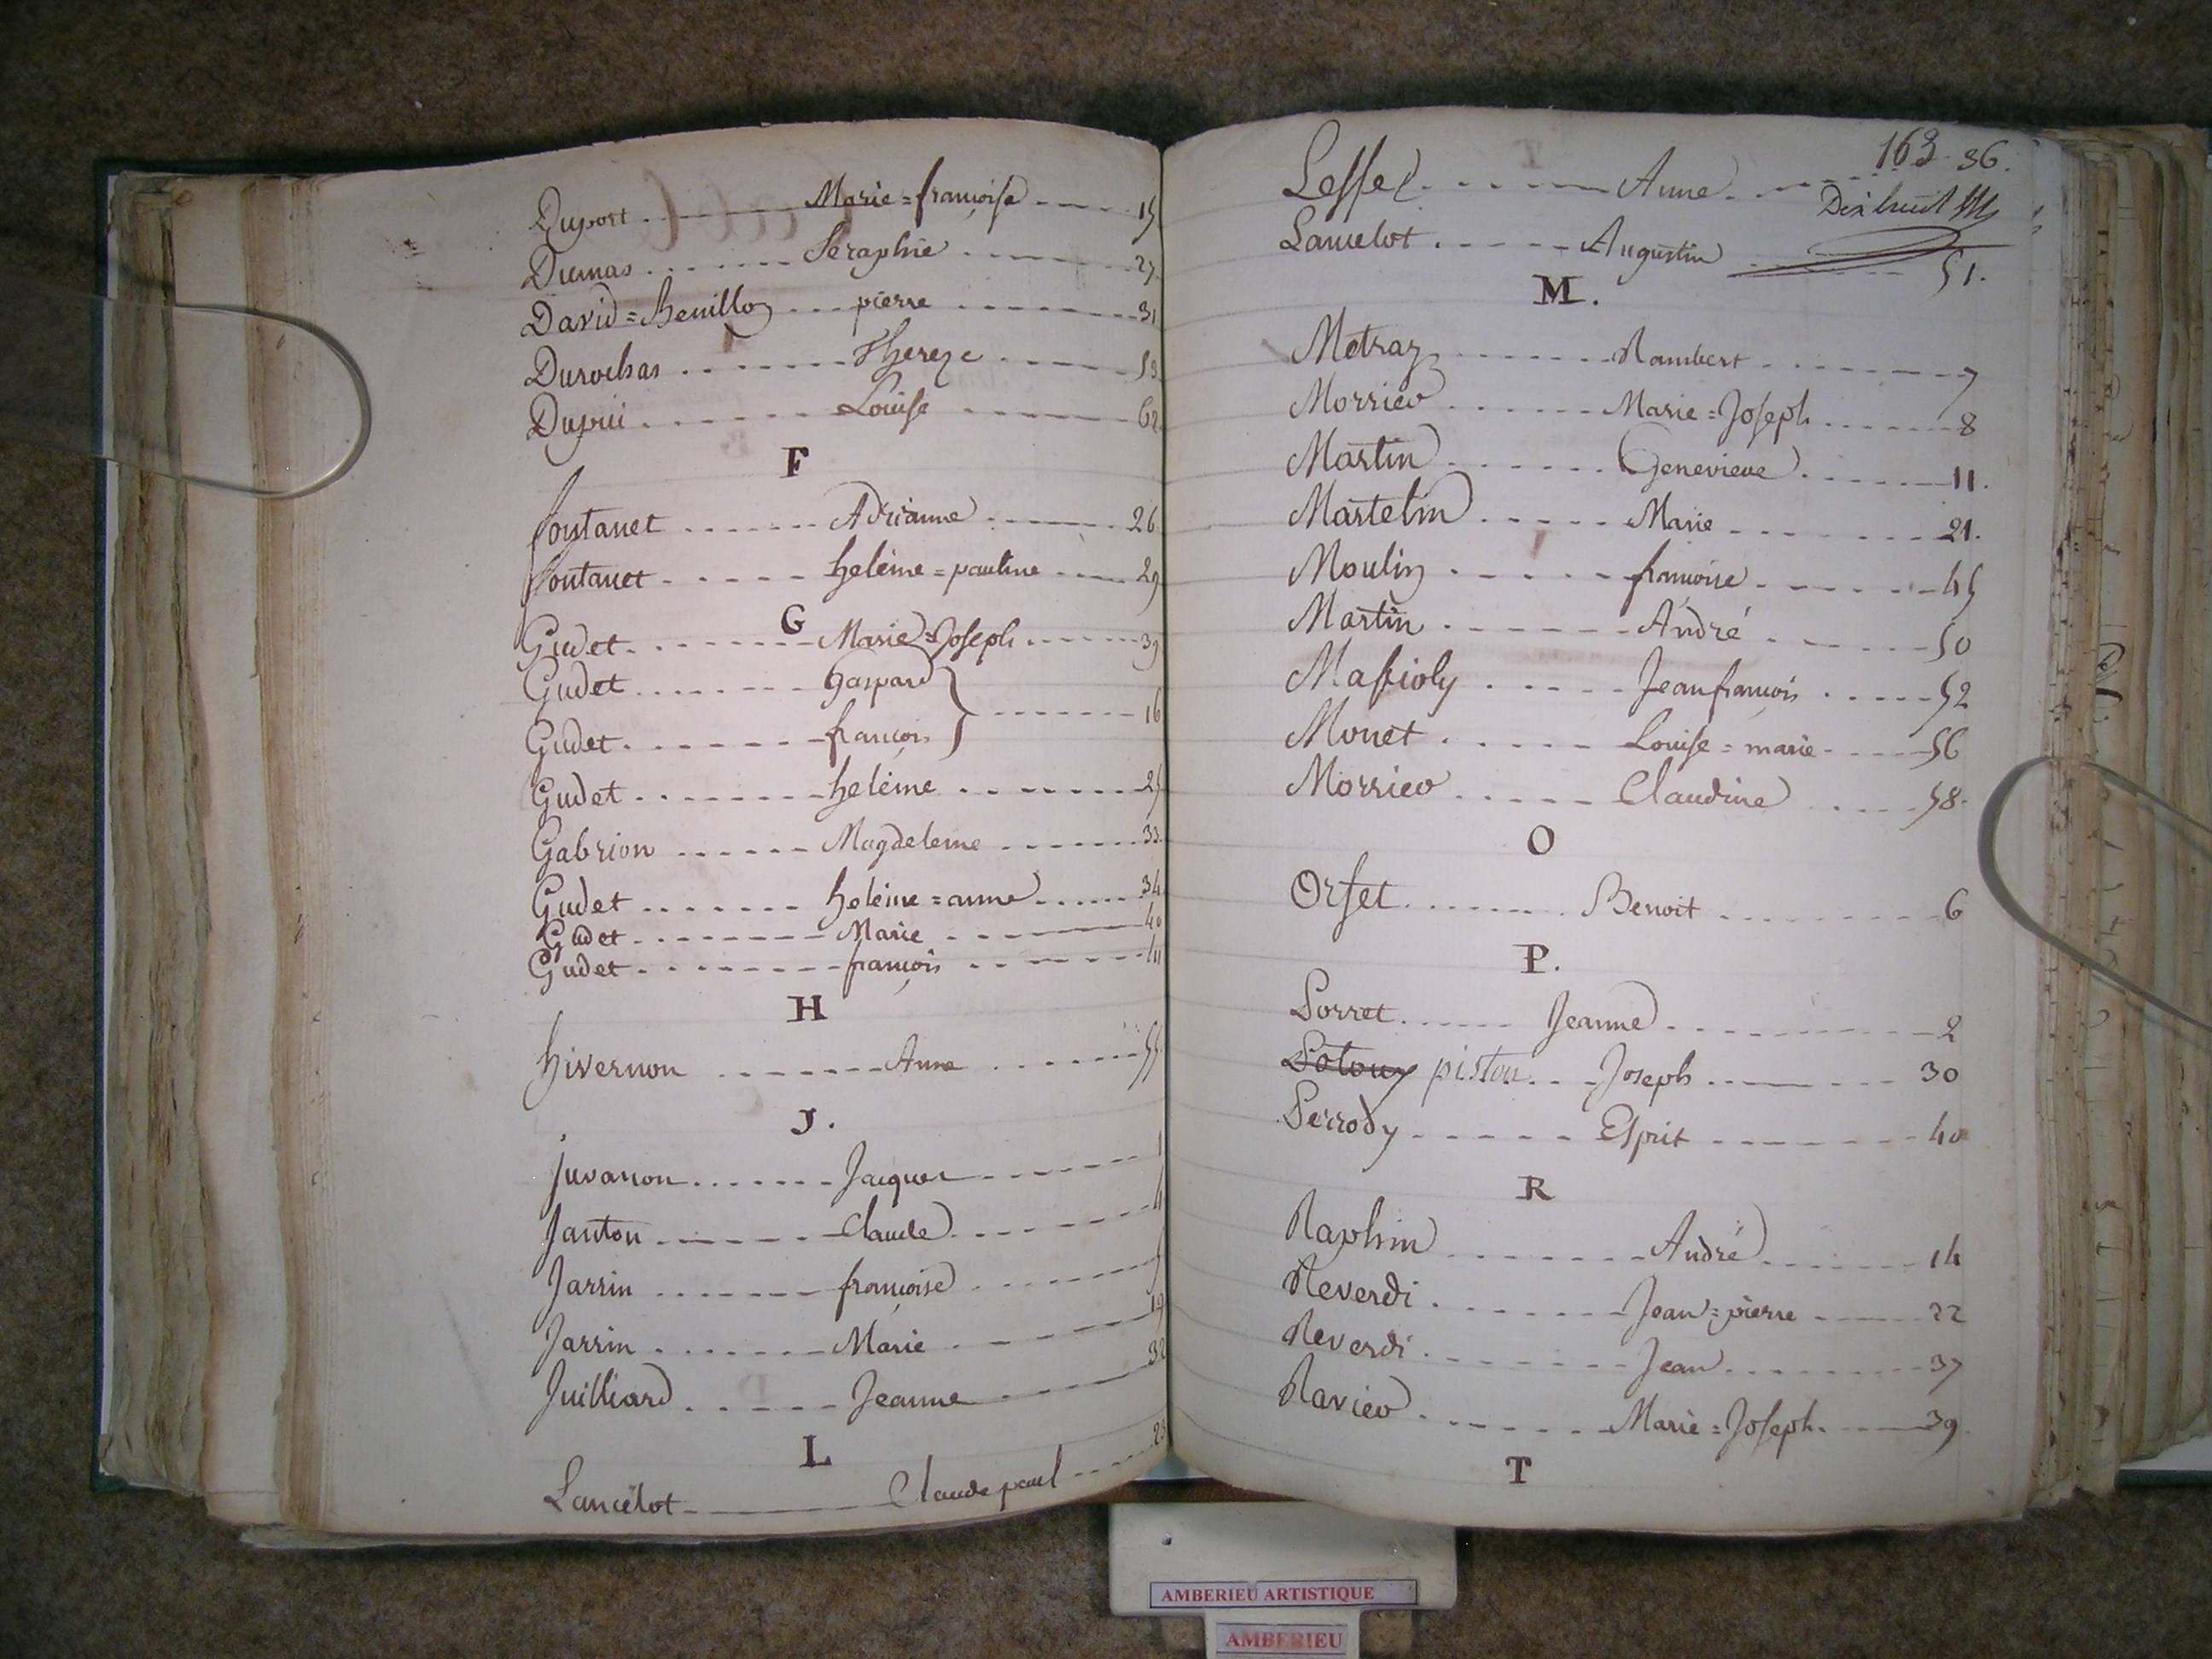 Duport Marie=françoise 15
Dumas Seraphie 27
David=Benillon pierre 31
Durochas Thereze 53
Dupui Louise 62
F
fontanet Adrianne 26
fontanet heléine=pauline 29
G
Gudet Marie=Joseph 39
Gudet Gaspard
16
Gudet françois
Gudet heléine 25
Gabrion Magdeleine 33
Gudet heléine=anne 34
Gudet Marie 40
Gudet françois 41
H
hivernon Anne 55
J.
juvanon Jacques 1
Janton Claude 4
Jarrin françoise
Jarrin Marie 19
Juilliard Jeanne 32
L
Lancelot Claude paul 23
163 36.
Leffel Anne
Dix huit
Lancelot Augustin 51.
M.
Metraz Rambert 7
Morrier Marie=Joseph 8
Martin Genevieve 11.
Martelin Marie 21.
Moulin françoise 45
Martin André 50
Massioly Jean françois 52
Monet Louise=marie 56
Morrier Claudine 58.
O
Orset Benoit 6
P.
Porret Jeanne 2
piston Joseph 30
Perrody Esprit 40
R
Raphin André 14
Reverdi Jean=pierre 22
Reverdi Jean 37
Ravier Marie=Joseph 39.
T
AMBERIEU ARTISTIQUE
AMBERIEU